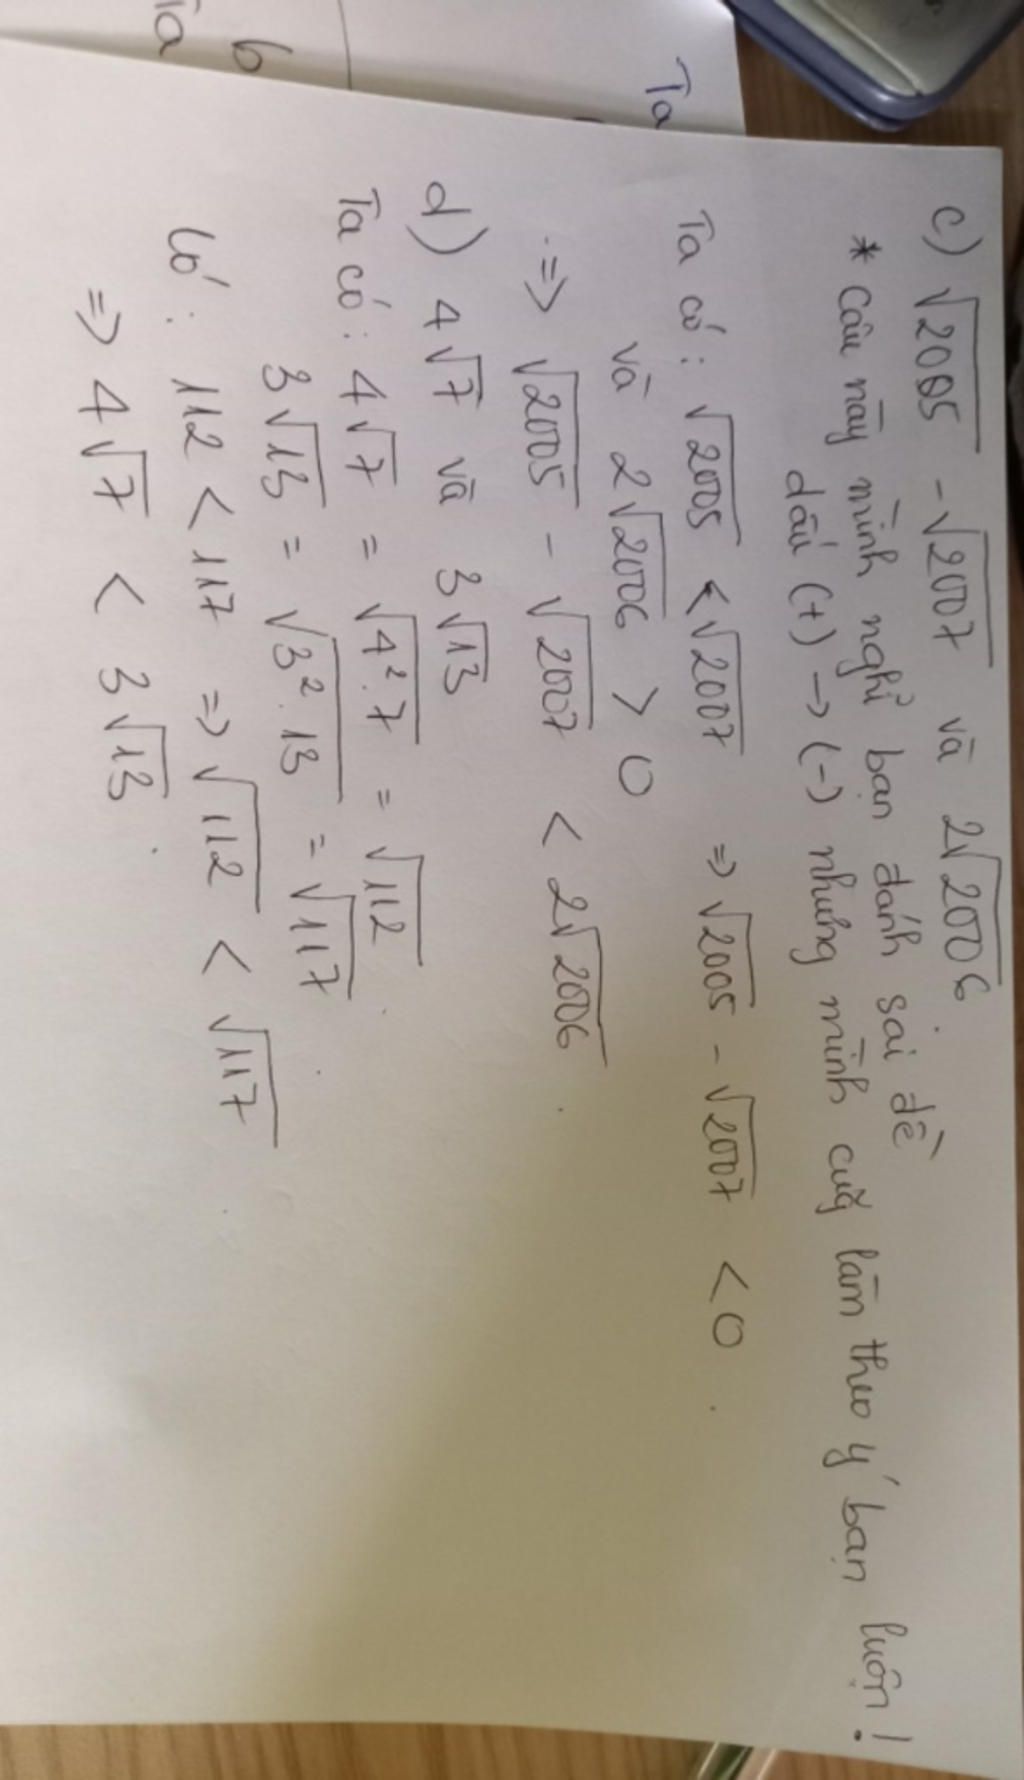 c) √2005 - √2007 và 2√2006
* Câu này mình nghĩ bạn đánh sai đề
dấu (+) → (-) nhưng mình cũg làm theo ý bạn luôn!
Ta có: √2005 < √2007 ⇒ √2005 - √2007 < 0
và 2√2006 > 0
⇒ √2005 - √2007 < 2√2006
d) 4√7 và 3√13
Ta có: 4√7 = √4².7 = √112
3√13 = √3².13 = √117
Có: 112 < 117 ⇒ √112 < √117
⇒ 4√7 < 3√13
Ta
b
Ta